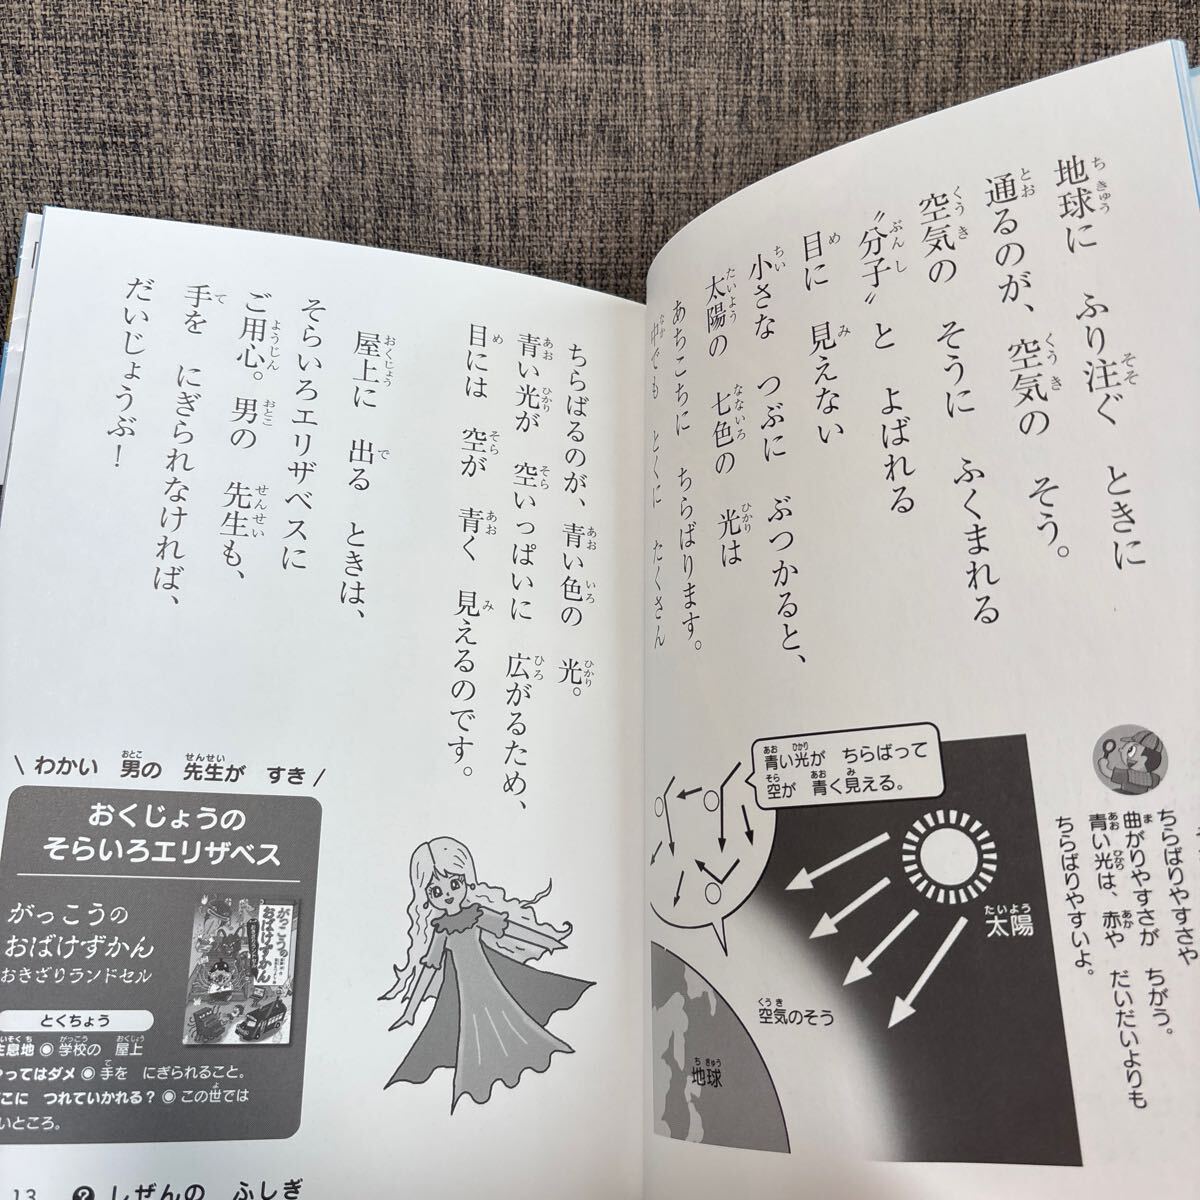 地球に　ふり注ぐ　ときに
通るのが、空気の　そう。
空気の　そうに　ふくまれる
〝分子〟と　よばれる
目に　見えない
小さな　つぶに　ぶつかると、
太陽の　七色の　光は
あちこちに　ちらばります。
中でも　とくに　たくさん
ちらばりやすさや
曲がりやすさが　ちがう。
青い光は、赤や　だいだいよりも
ちらばりやすいよ。
青い光が　ちらばって
空が　青く見える。
太陽
空気のそう
地球
ちらばるのが、青い色の　光。
青い光が　空いっぱいに　広がるため、
目には　空が　青く　見えるのです。
屋上に　出る　ときは、
そらいろエリザベスに
ご用心。男の　先生も、
手を　にぎられなければ、
だいじょうぶ！
わかい　男の　先生が　すき
おくじょうの
そらいろエリザベス
がっこうの
おばけずかん
おきざりランドセル
がっこうの
おばけずかん
とくちょう
息地◉学校の　屋上
ってはダメ◉手を　にぎられること。
こに　つれていかれる？◉この世では
いところ。
13　？しぜんの　ふしぎ